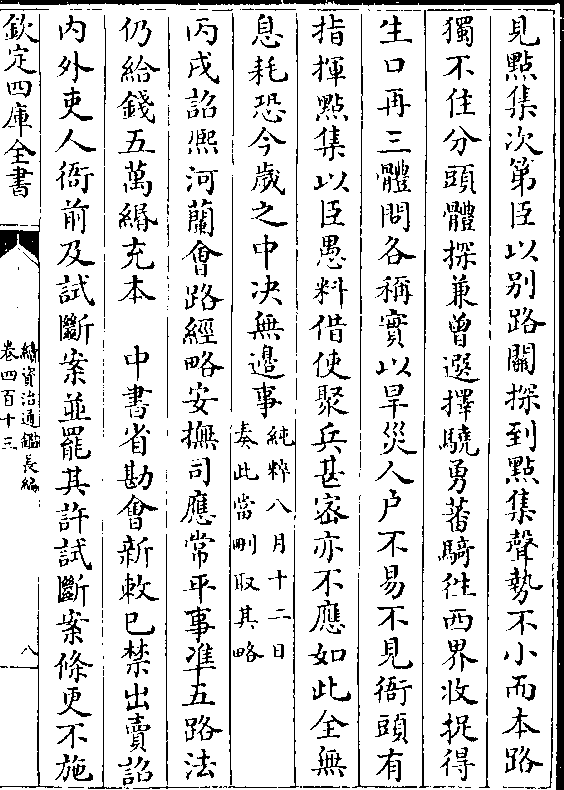 見點集次第臣以别路關探到點集聲勢不小而本路
獨不住分頭體探兼曾選擇驍勇蕃騎徃西界收捉得
生口再三體問各稱實以旱災人户不易不見衙頭有
指揮點集以臣愚料借使聚兵甚密亦不應如此全無
息耗恐今歳之中决無邉事純粹八月十二日奏此當刪取其略
丙戌詔熙河蘭會路經略安撫司應常平事凖五路法
仍給錢五萬緡充本　中書省勘會新敕已禁出賣詔
内外吏人衙前及試斷案並罷其許試斷案條更不施
欽定四庫全書
續資治通鑑長編
卷四百十三
八